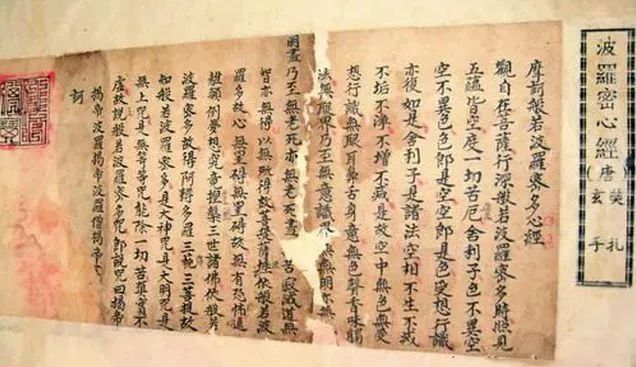 波羅密心經
(唐)
玄奘
手札
摩訶般若波羅蜜多心經
觀自在菩薩行深般若波羅蜜多時照見
五蘊皆空度一切苦厄舍利子色不異空
空不異色色即是空空即是色受想行識
亦復如是舍利子是諸法空相不生不滅
不垢不淨不增不減是故空中無色無受
想行識無眼耳鼻舌身意無色聲香味觸
法無眼界乃至無意識界無明亦無
明盡乃至無老死亦無老死盡苦寂滅道無
智亦無得以無所得故菩提薩埵依般若波
羅多故心無罣礙無罣礙故無有恐怖遠
顛倒夢想究竟涅槃三世諸佛依般若
波羅蜜多故得阿耨多羅三藐三菩提故
知般若波羅蜜多是大神咒是大明咒是
無上咒是無等等咒能除一切苦不
虛故說般若波羅蜜多咒即說咒曰揭帝
揭帝波羅揭帝波羅僧揭帝
訶